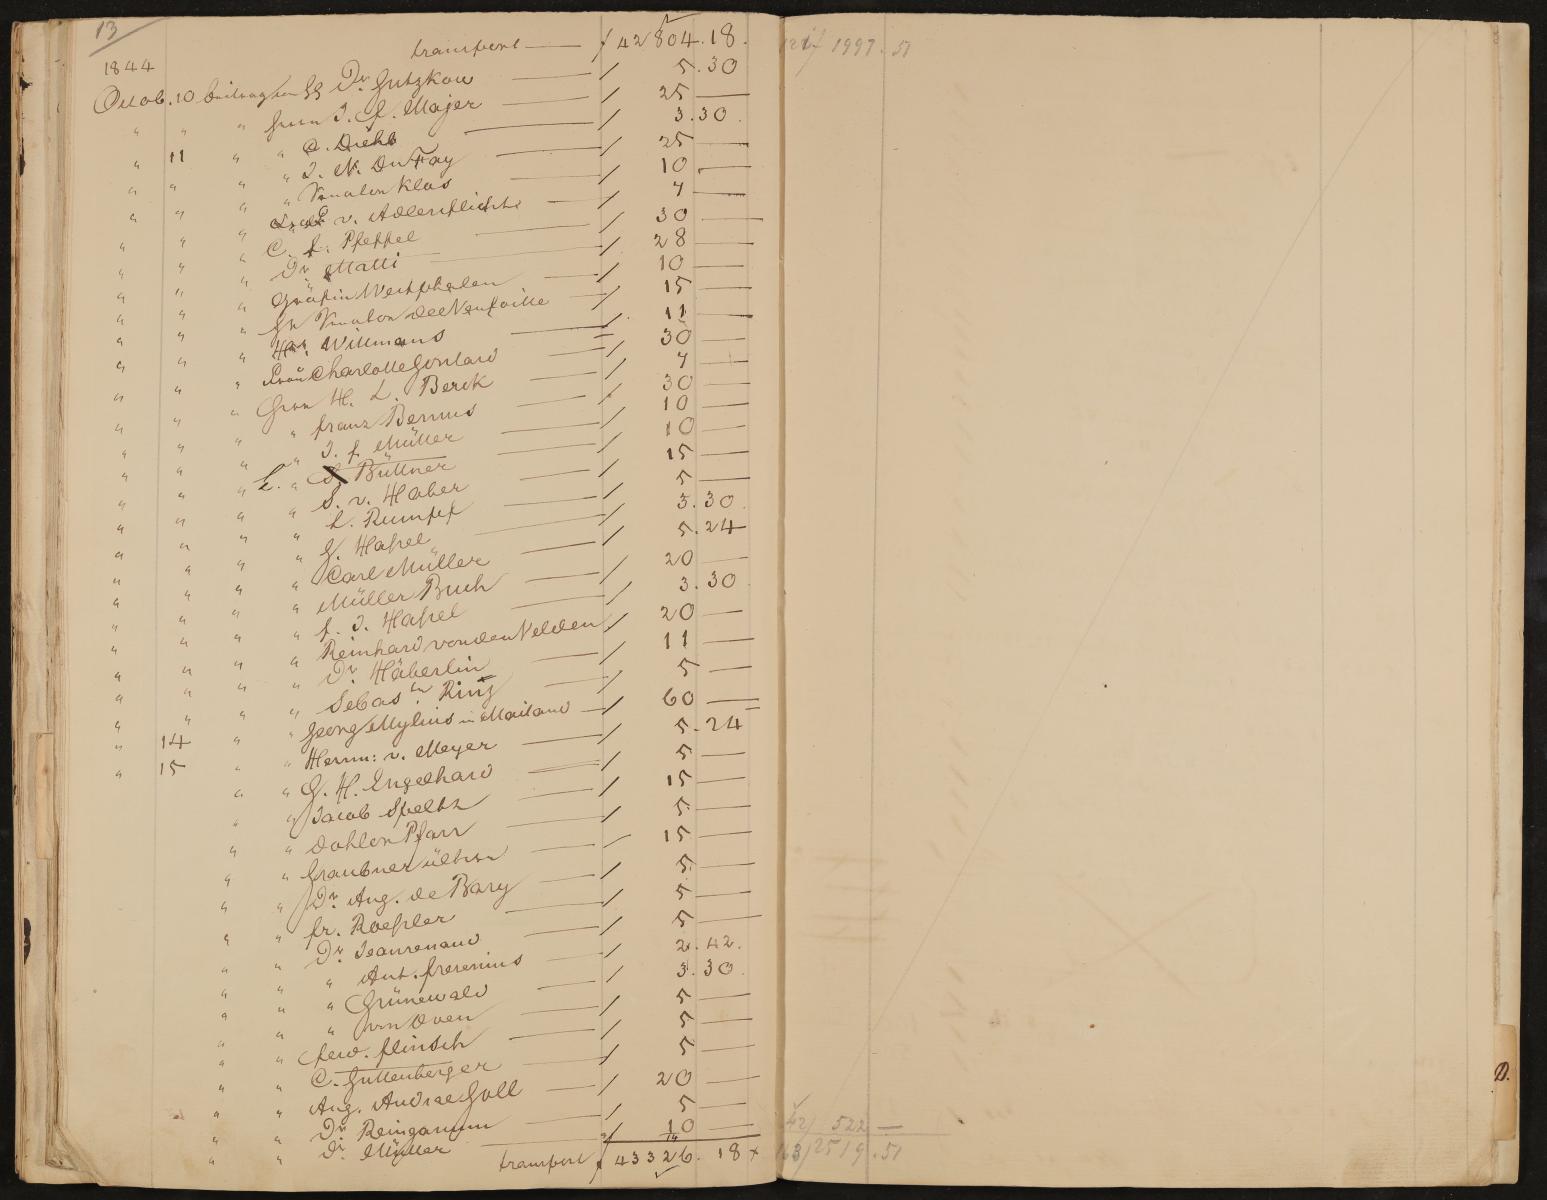 13
transport — f 42804.18.
1844
Octob. 10 beitrag von HH Dr. Gutzkow — 5.30
" " " Herrn J. F. Majer — 25 —
" 11 " " C. Diehl — 3.30.
" " " " J. N. Du Fay — 25 —
" " " " Senator Klas — 10 —
" " " v. Adlerflicht — 7 —
" " " C. F. Pfeffel — 30 —
" " " Dr. Matti — 28 —
" " " Gräfin Westphalen — 10 —
" " " Hr Senator de Neufville — 15 —
" " " Hr. Willmans — 11 —
" " " Frau Charlotte Gontard — 30 —
" " " Herrn H. L. Berck — 7 —
" " " " Franz Bernus — 30 —
" " " " J. F. Müller — 10 —
" " " " Büttner — 10 —
" " " " S. v. Haber — 15 —
" " " " L. Rumpf — 5 —
" " " " G. Haßel — 3.30.
" " " " Carl Müller — 5.24
" " " " Müller Buch — 20 —
" " " " F. J. Haßel — 3.30
" " " " Reinhard von den Velden 20 —
" " " " Dr. Häberlin — 11 —
" " " " Sebas tn Ring — 5 —
" " " " Georg Mylius in Mailand — 60 —
" 14 " " Herm: v. Meyer — 5.24
" 15 " " G. H. Engelhard — 5 —
" " Jacob Speltz — 15 —
" " Dahlen Pfarr — 5 —
" " Graubner — 15 —
" " Dr. Aug. de Bary — 5 —
" " Fr. Roeßler — 5 —
" " Dr. Jeanrenaud — 5 —
" " " Ant. Fresenius — 2.42.
" " " Grünewald — 3.30
" " " von Oven — 5 —
" " Ferd. Flinsch — 5 —
" " C. Guttenberger — 5 —
" " Aug. Andreae Goll — 20 —
" " Dr Reinganum — 5 —
" " Dr. Müller — 10 —
transport f 43326.18
121/ 1997.51
42/ 522 —
163/ 2519.51
D.